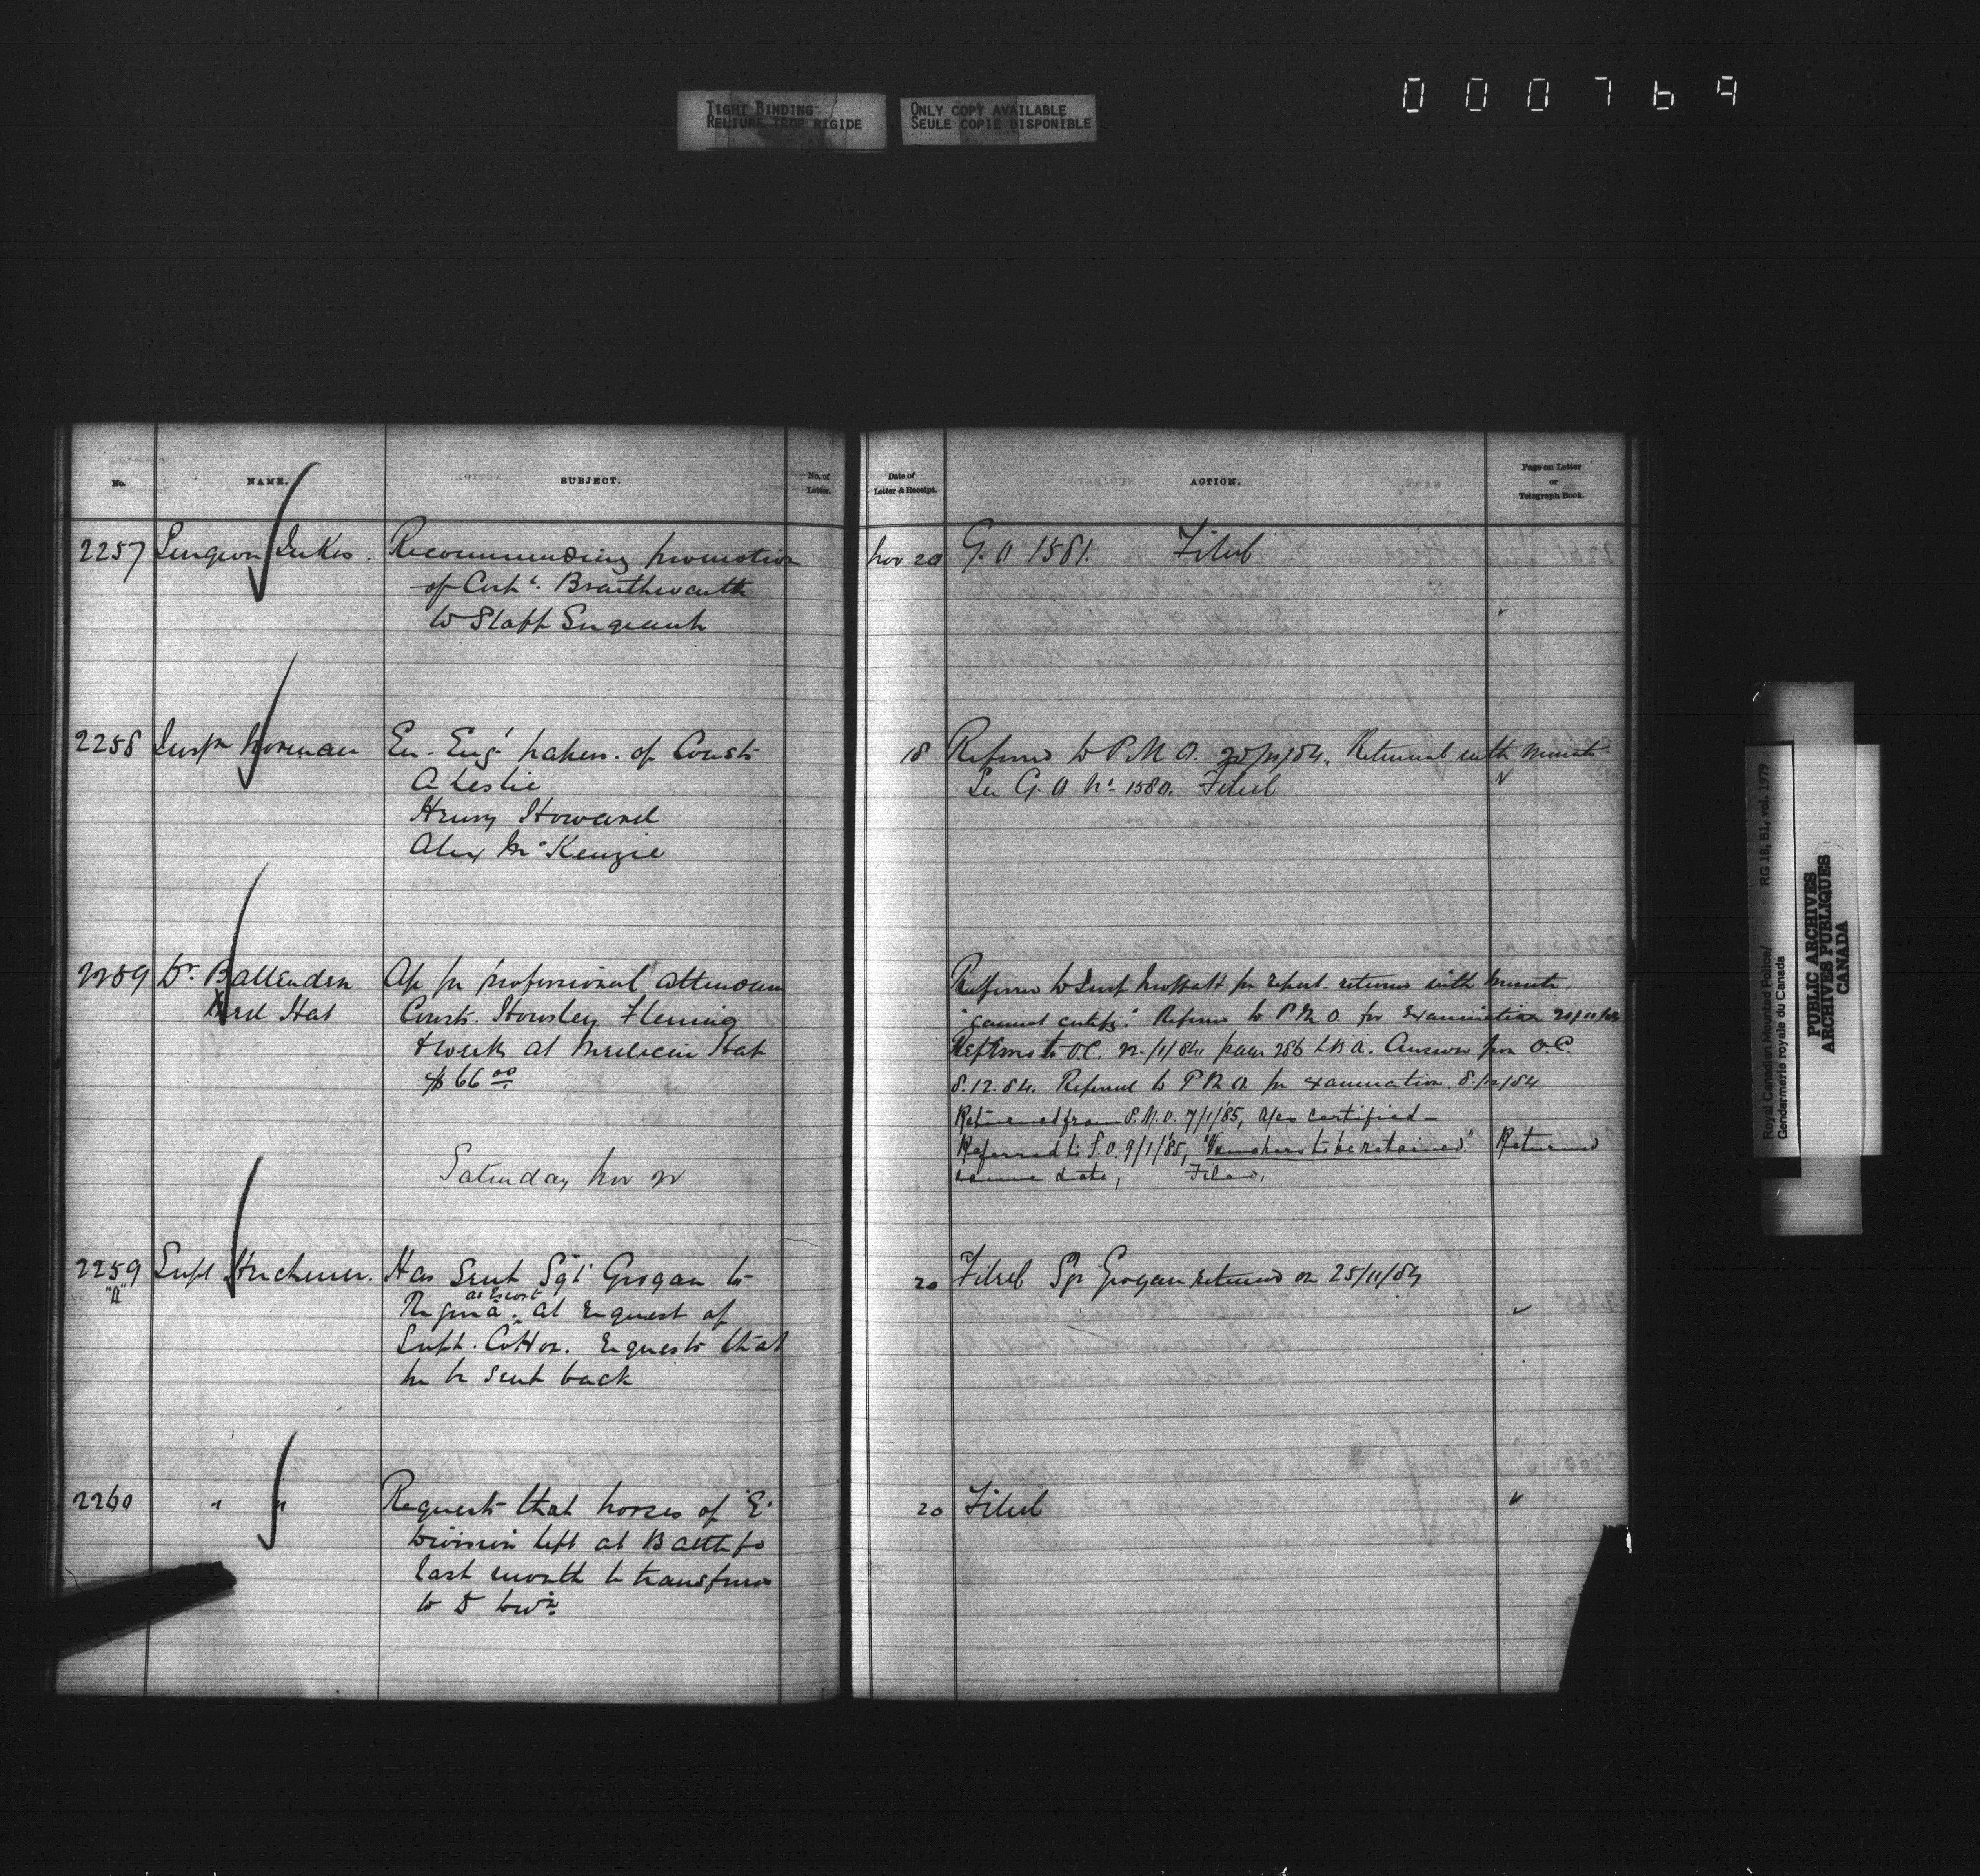 000769
TIGHT BINDING
RELIURE TROP RIGIDE
ONLY COPY AVAILABLE
SEULE COPIE DISPONIBLE
No. NAME. SUBJECT. No. of Letter.
Date of Letter & Receipt. ACTION. Page on Letter or Telegraph Book.
2257 Surgeon Jukes. Recommending promotion
of Corpl. Braithwaite
to Staff Sergeant
Nov 20 G.O 1581. Filed
2258 Inspr Norman En. Eng. papers. of Consts
A Leslie
Henry Howard
Alex McKenzie
18 Referred to P.M.O. 20/11/84. Returned with minute
See G.O No. 1580. Filed
2259 Dr. Ballenden
Med Hat
Ap for professional attendance
Consts. Howsley Fleming
& Weeks at Medicine Hat
$66 00
Referred to Supt for report. returned with minute.
"cannot certify." Referred to P.M.O. for examination 20/11/84
Referred to O.C. 22/11/84 page 286 LBA. Answer from O.C.
8.12.84. Referred to P.M.O. for examination. 8/12/84
Returned from P.M.O. 7/1/85, a/cs certified—
Referred to S.O. 9/1/85, "Vouchers to be retained." Returned
same date, Filed,
Saturday Nov 22
2259 Supt Herchmer. Has sent Sgt Grogan to
"A"
Regina as Escort. at request of
Supt. Cotton. requests that
he be sent back
20 Filed Sgt Grogan returned on 25/11/84
2260 " " Requests that horses of 'E'
Division left at Battlefo
last month be transferred
to D Divn.
20 Filed
Royal Canadian Mounted Police/ RG 18, B1, vol. 1979
Gendarmerie royale du Canada
PUBLIC ARCHIVES
ARCHIVES PUBLIQUES
CANADA